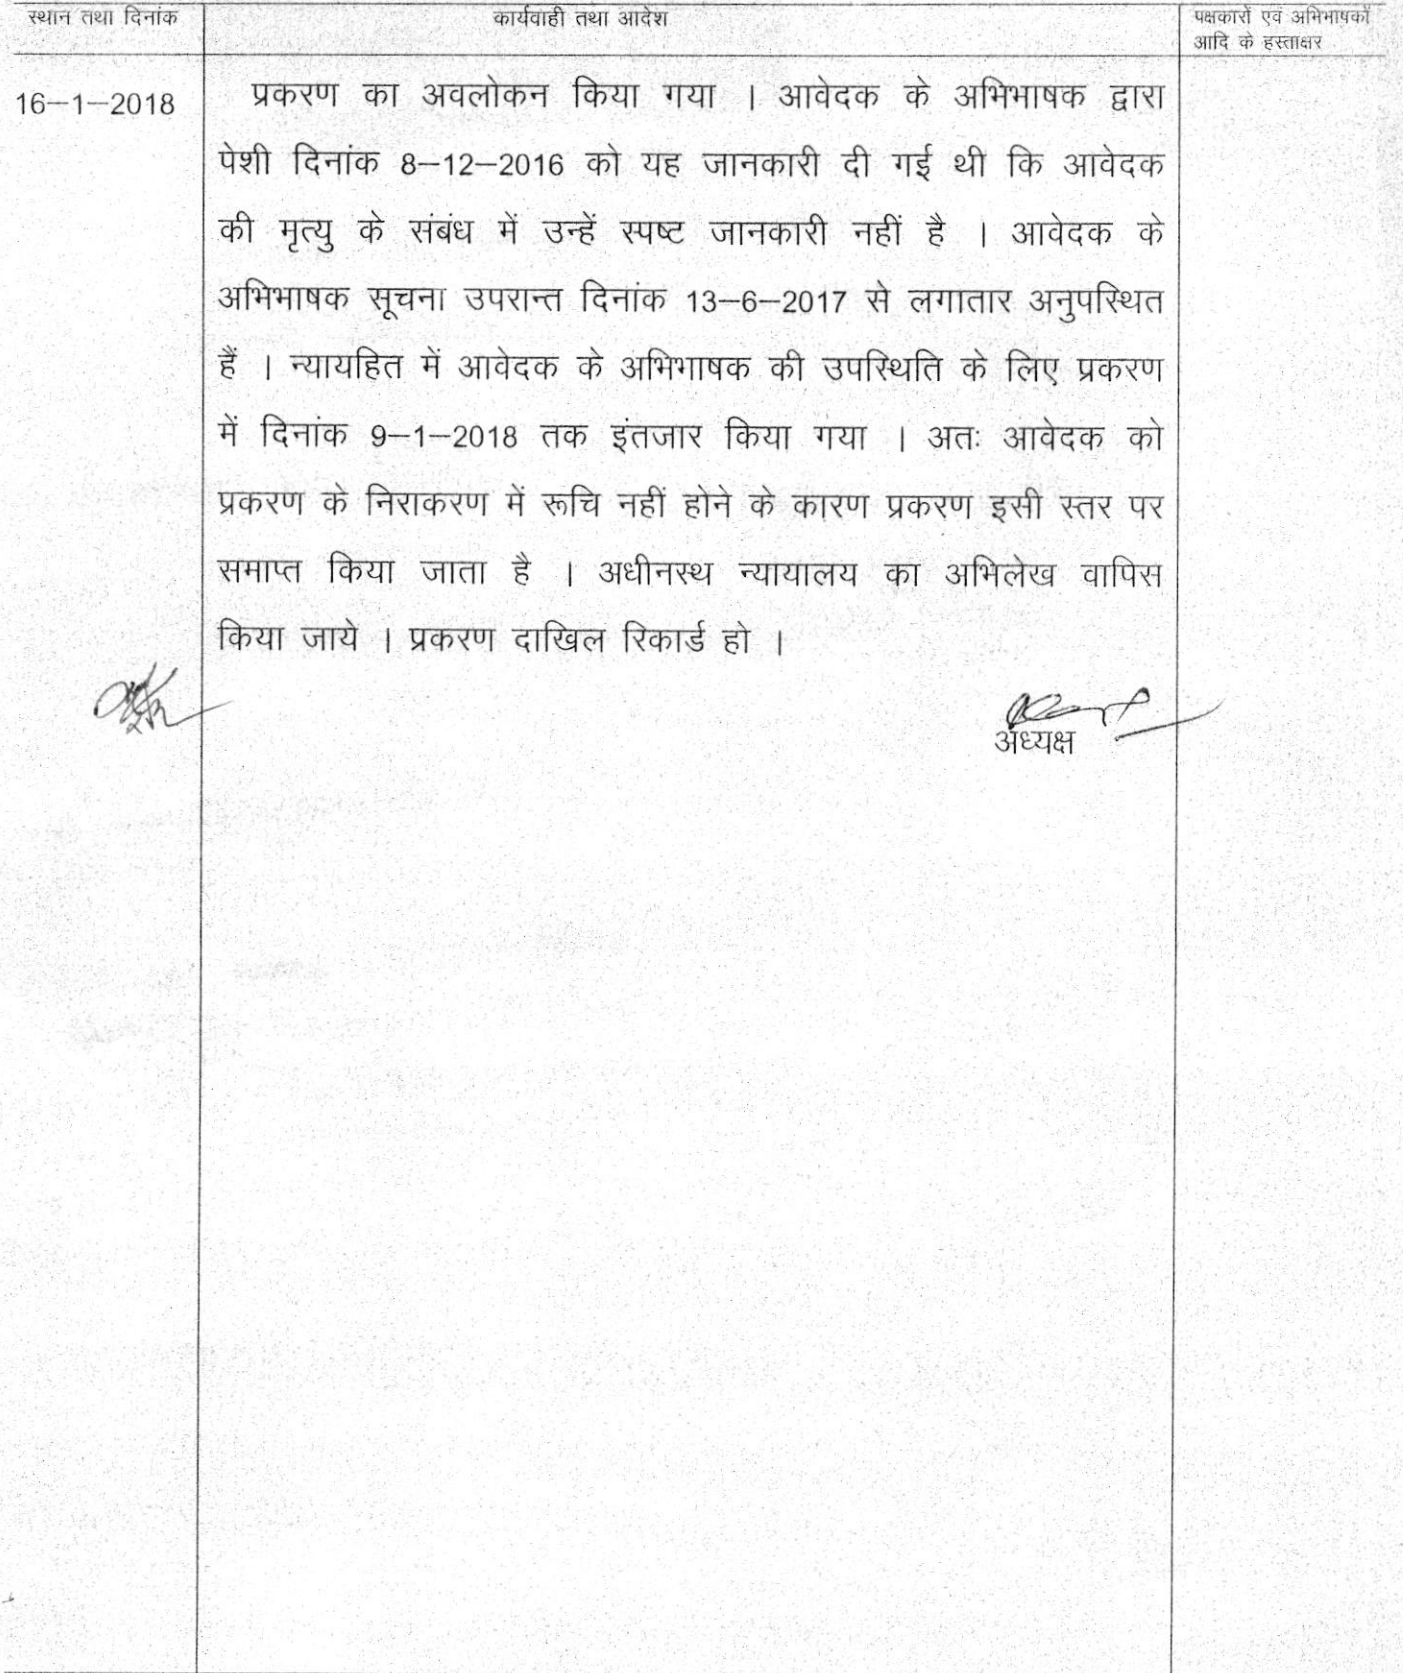 स्थान तथा दिनांक
कार्यवाही तथा आदेश
पक्षकारों एवं अभिभाषकों
आदि के हस्ताक्षर
16–1–2018
प्रकरण का अवलोकन किया गया । आवेदक के अभिभाषक द्वारा
पेशी दिनांक 8–12–2016 को यह जानकारी दी गई थी कि आवेदक
की मृत्यु के संबंध में उन्हें स्पष्ट जानकारी नहीं है । आवेदक के
अभिभाषक सूचना उपरान्त दिनांक 13–6–2017 से लगातार अनुपस्थित
हैं । न्यायहित में आवेदक के अभिभाषक की उपस्थिति के लिए प्रकरण
में दिनांक 9–1–2018 तक इंतजार किया गया । अतः आवेदक को
प्रकरण के निराकरण में रूचि नहीं होने के कारण प्रकरण इसी स्तर पर
समाप्त किया जाता है । अधीनस्थ न्यायालय का अभिलेख वापिस
किया जाये । प्रकरण दाखिल रिकार्ड हो ।
अध्यक्ष